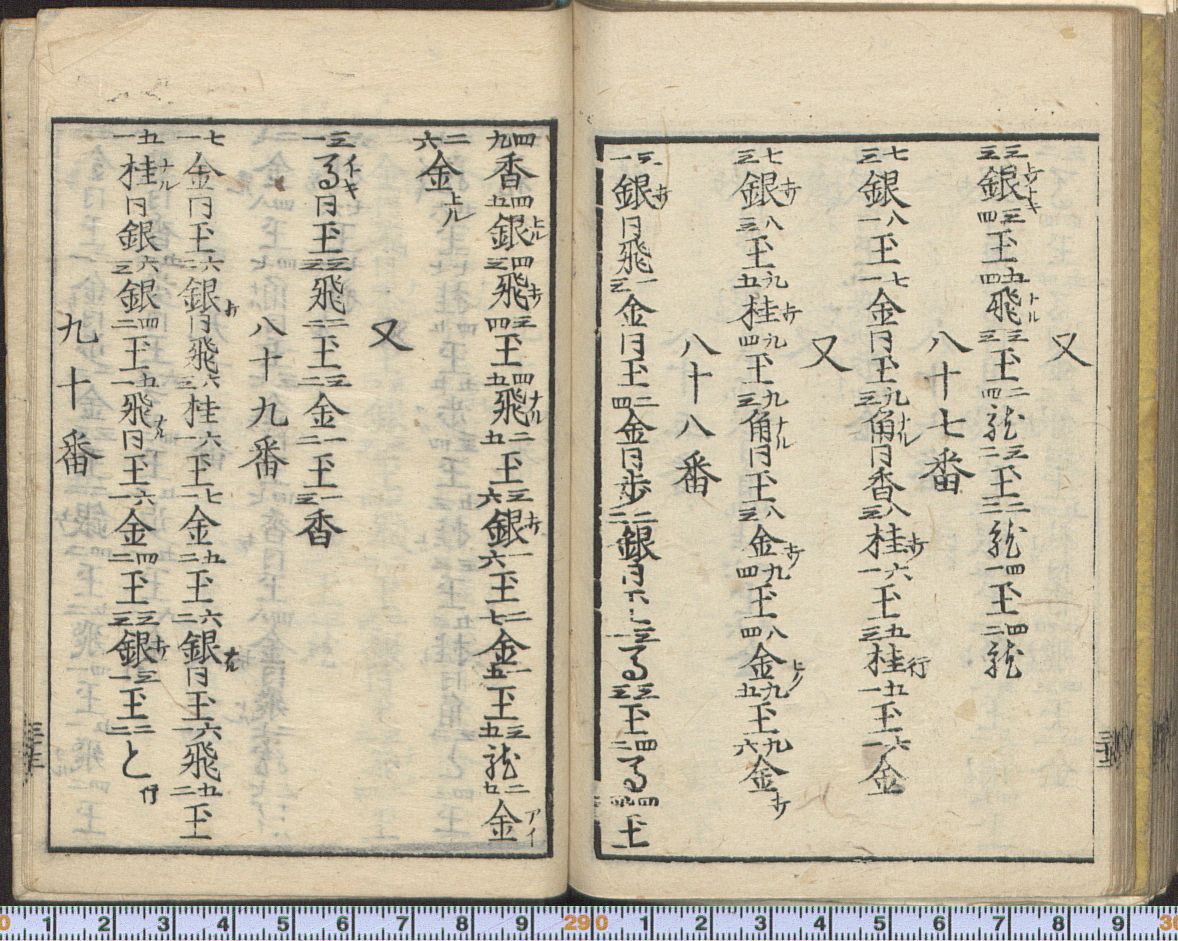 又
三三銀三四王五四飛ナル三三王二四龍三二王二三龍四一王四二龍
八十七番
七三銀八一王七一金同王九三角ナル同香八三桂打六一王五三桂行五一王六一金
又
七三銀打八三王九五桂打九四王九三角ナル同王八三金打九四王八四金上ル九五王九六金打
八十八番
三一銀打同飛一三金同王二四金同歩二二銀同三一馬三三王四二馬四四王
四九香四五銀上ル四三飛打三四王四五飛ナル二五王三六銀打一六王二七金一五王三五龍二五金アイ
二六金上ル
又
三一馬イキ同王三三飛二二王三二金一二王一三香
八十九番
七一金同王六二銀打同飛六三桂六一王七一金五二王六二銀ナル同王六一飛五二王
五一桂ナル同銀六三銀四二王五一飛ナル同王六一金四二王三三銀打三一王二二と行
九十番